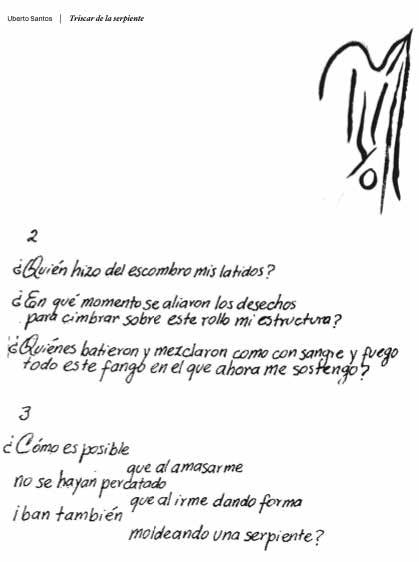 Uberto Santos | Triscar de la serpiente
2
¿Quién hizo del escombro mis latidos?
¿En qué momento se aliaron los desechos
para cimbrar sobre este rollo mi estructura?
¿Quiénes batieron y mezclaron como con sangre y fuego
todo este fango en el que ahora me sostengo?
3
¿Cómo es posible
que al amasarme
no se hayan percatado
que al irme dando forma
iban también
moldeando una serpiente?